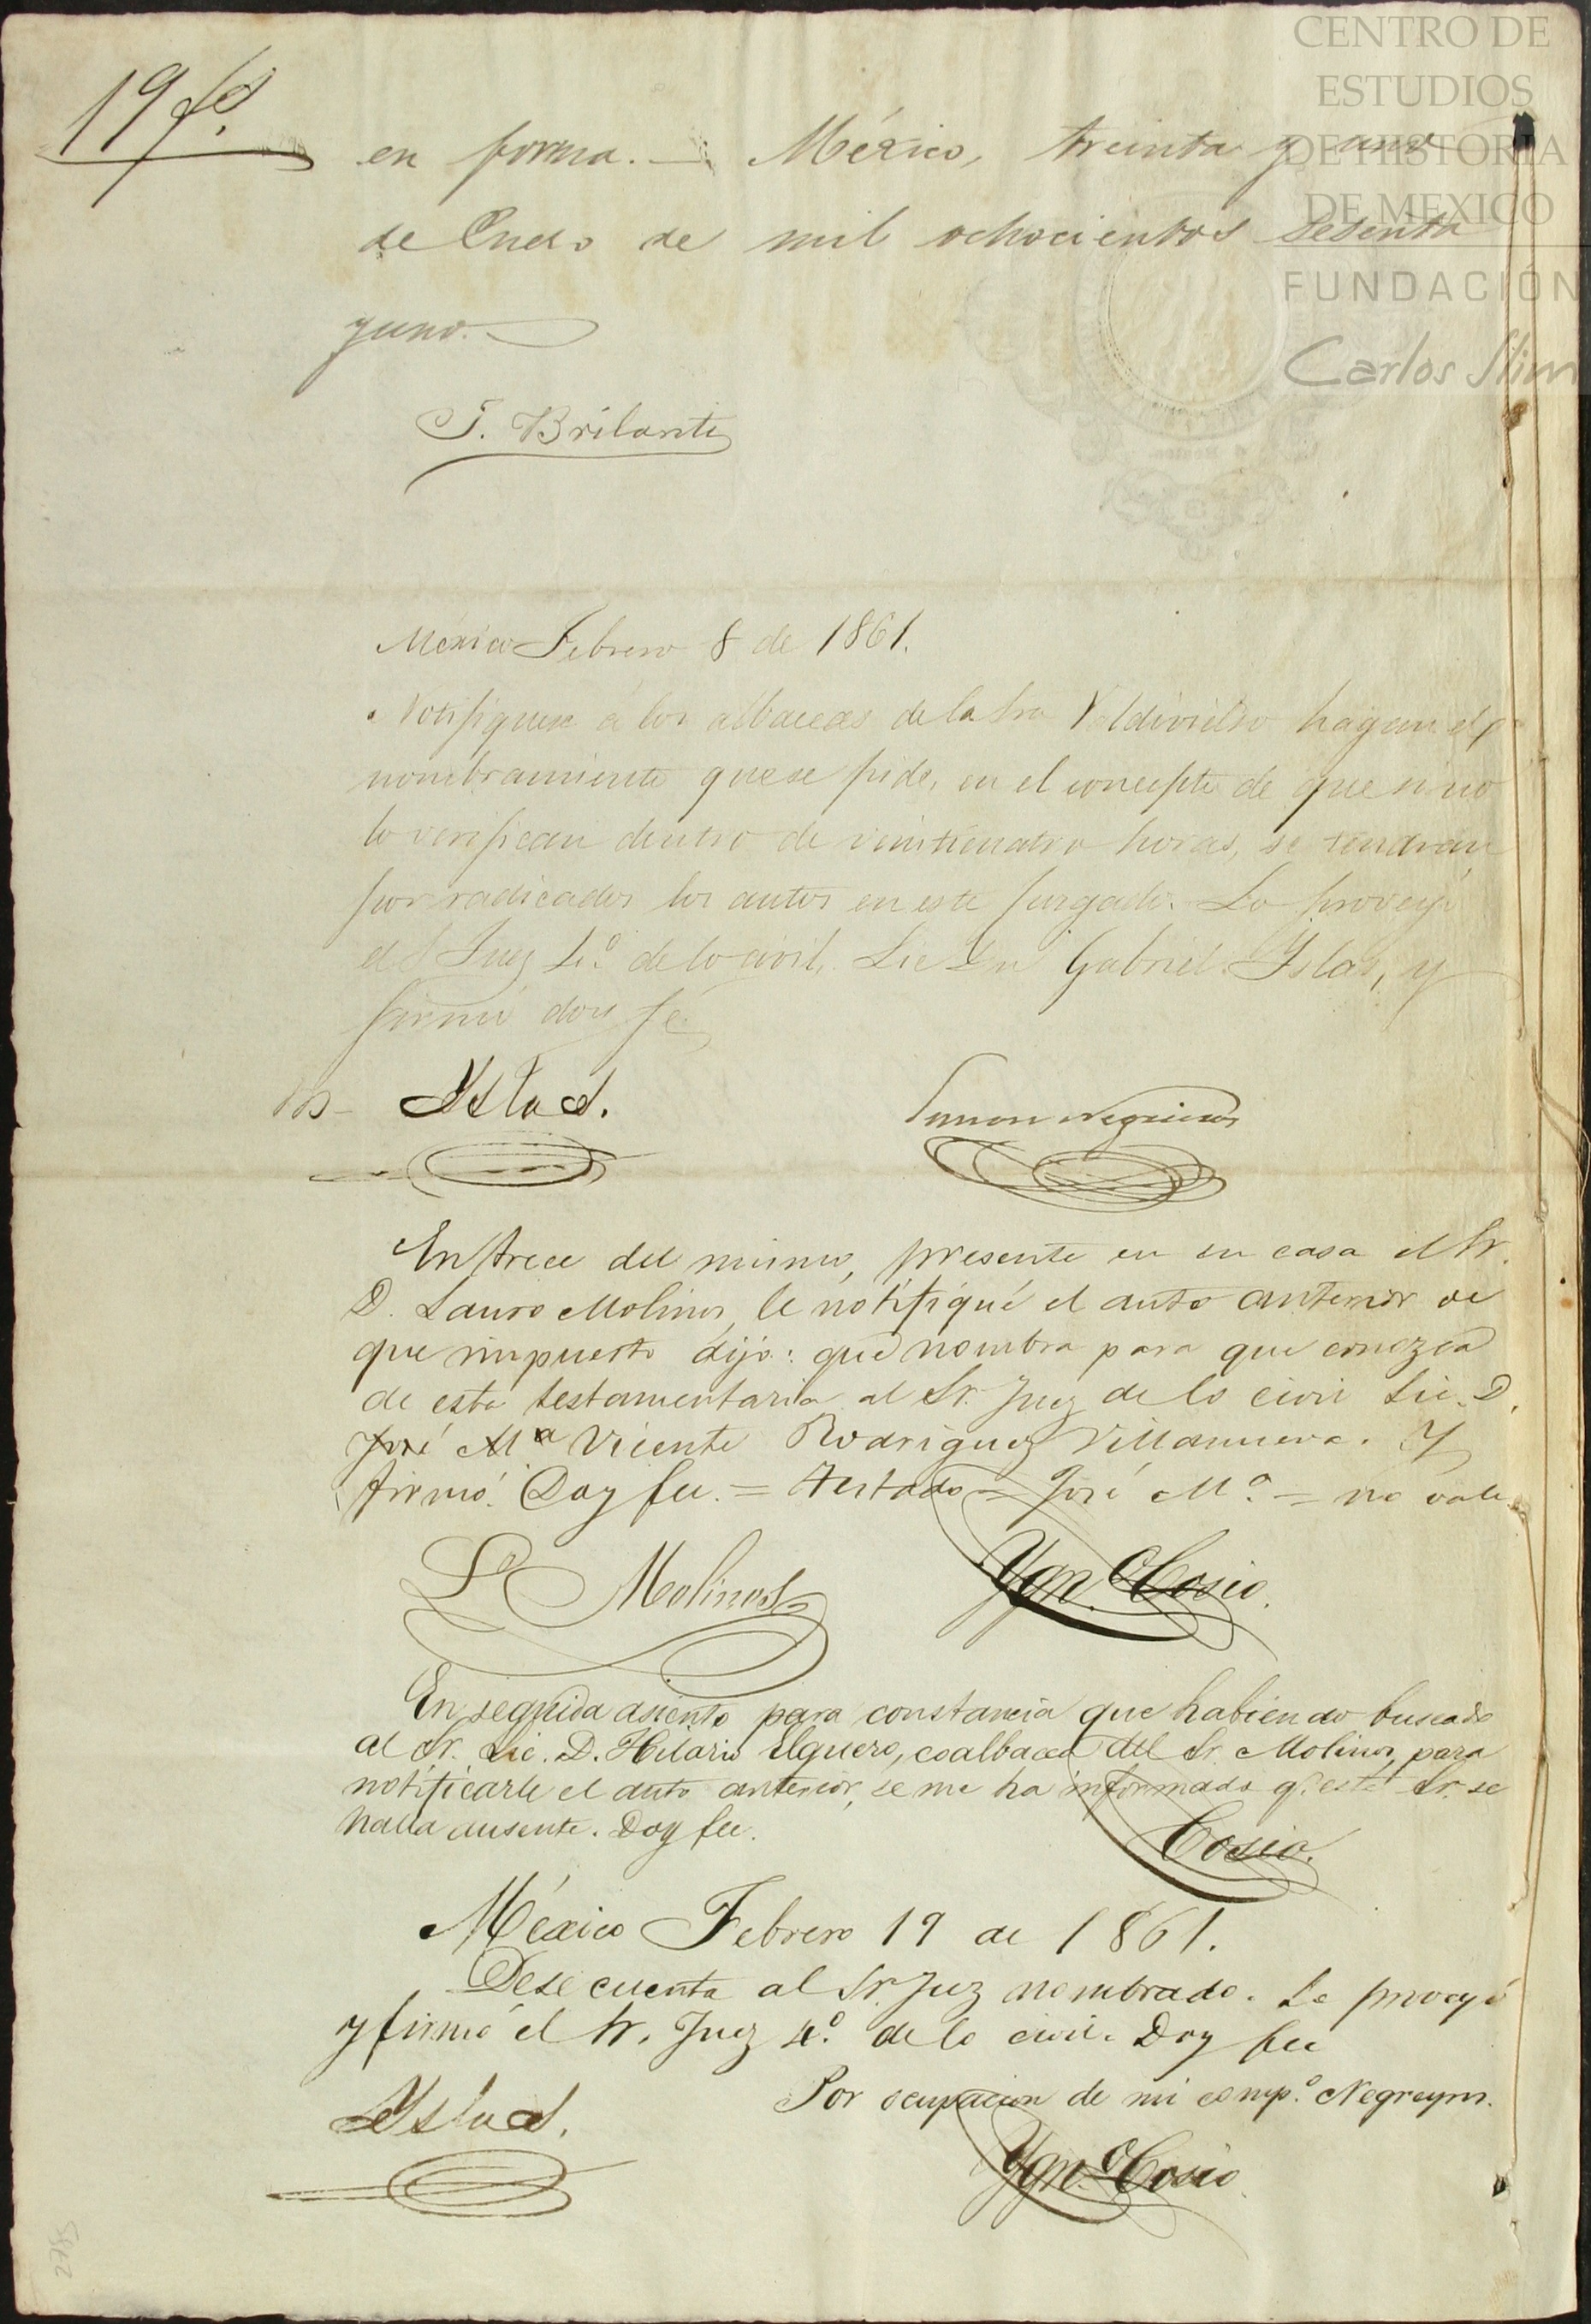 CENTRO DE
ESTUDIOS
DE HISTORIA
DE MEXICO
FUNDACIÓN
Carlos Slim
19 fs.
en forma. — México, treinta y uno
de Enero de mil ochocientos sesenta
y uno.
T. Brilanti
México Febrero 8 de 1861.
Notifiquese á los albaceas de la Sra Valdivielso hagan el
nombramiento que se pide, en el concepto de que si no
lo verifican dentro de veinticuatro horas, se tendran
por radicados los autos en este juzgado. Lo proveyó
el S Juez 4.º de lo civil, Lic Dn Gabriel Islas, y
firmó doy fé
Yslas.
Simon Negreiros
En trece del mismo, presente en su casa el Sr.
D. Lauro Molinos, le notifiqué el auto anterior de
que impuesto dijo: que nombra para que conozca
de esta testamentaria al Sr. Juez de lo civil Lic. D.
José Mª Vicente Rodriguez Villanueva. Y
firmó. Doy fee. = Testado = José Mª = no vale
L Molinos
Ygn.º Cosio.
En seguida asiento para constancia que habiendo buscado
al Sr. Lic. D. Hilario Elguero, coalbacea del Sr. Molinos, para
notificarle el auto anterior, se me ha informado q. este Sr. se
halla ausente. Doy fee.
Cosio.
México Febrero 19 de 1861.
Dese cuenta al Sr. Juez nombrado. Lo proveyó
y firmó el Sr. Juez 4.º de lo civil. Doy fee
Yslas.
Por ocupacion de mi comp.º Negreyros.
Ygn.º Cosio